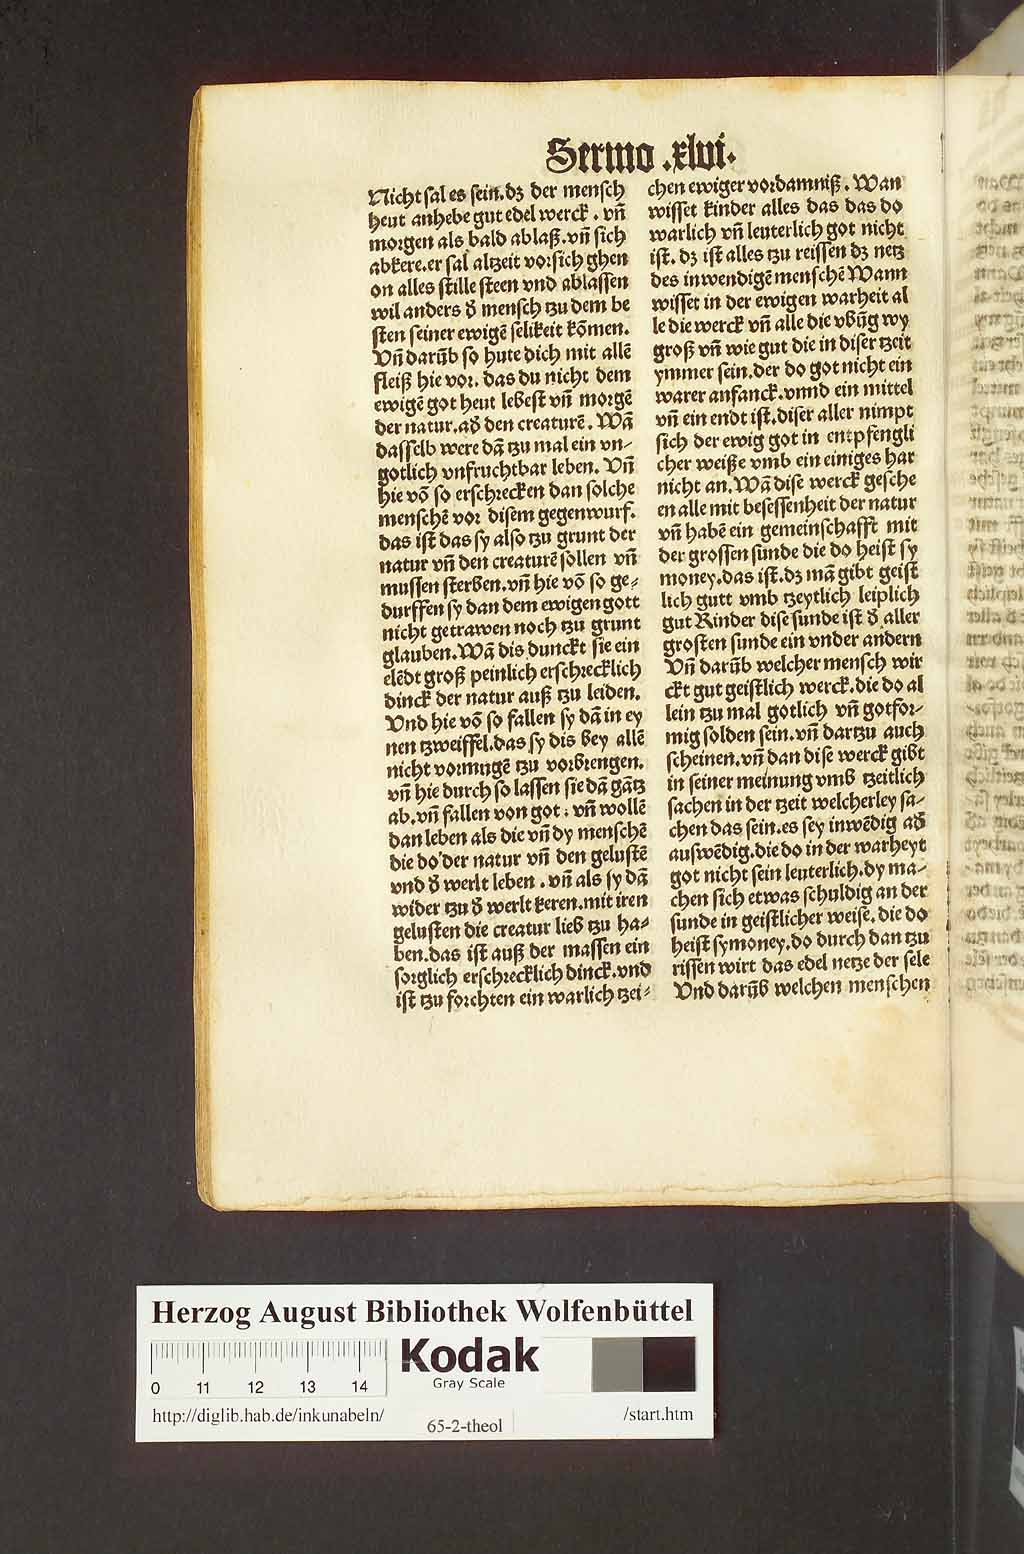 Sermo .xlvi.
Nicht sal es sein. dz der mensch
heut anhebe gut edel werck . vñ
morgen als bald ablaß. vñ sich
abkere. er sal altzeit vorsich ghen
on alles stille steen vnd ablassen
wil anders d̕ mensch tzu dem be
sten seiner ewigē selikeit kōmen.
Vñ darūb so hute dich mit allē
fleiß hie vor. das du nicht dem
ewigē got heut lebest vñ morgē
der natur. ad̕ den creaturē. Wā
dasselb were dā tzu mal ein vn-
gotlich vnfruchtbar leben. Vñ
hie vō so erschrecken dan solche
menschē vor disem gegenwurf.
das ist das sy also tzu grunt der
natur vñ den creaturē sollen vñ
mussen sterben. vñ hie vō so ge-
durffen sy dan dem ewigen gott
nicht getrawen noch tzu grunt
glauben. Wā dis dunckt sie ein
elēdt groß peinlich erschrecklich
dinck der natur auß tzu leiden.
Vnd hie vō so fallen sy dā in ey
nen tzweiffel. das sy dis bey allē
nicht vormugē tzu vorbrengen.
vñ hie durch so lassen sie dā gātz
ab. vñ fallen von got : vñ wollē
dan leben als die vñ dy menschē
die do der natur vñ den gelustē
vnd d̕ werlt leben . vñ als sy dā
wider tzu d̕ werlt keren. mit iren
gelusten die creatur lieb tzu ha-
ben. das ist auß der massen ein
sorglich erschrecklich dinck. vnd
ist tzu forchten ein warlich tzei-
chen ewiger vordamniß . Wan
wisset kinder alles das das do
warlich vñ leuterlich got nicht
ist. dz ist alles tzu reissen dz netz
des inwendigē menschē Wann
wisset in der ewigen warheit al
le die werck vñ alle die vbūg wy
groß vñ wie gut die in diser tzeit
ymmer sein. der do got nicht ein
warer anfanck. vnnd ein mittel
vñ ein endt ist. diser aller nimpt
sich der ewig got in entpfengli
cher weiße vmb ein einiges har
nicht an. Wā dise werck gesche
en alle mit besessenheit der natur
vñ habē ein gemeinschafft mit
der grossen sunde die do heist sy
money. das ist. dz mā gibt geist
lich gutt vmb tzeytlich leiplich
gut Kinder dise sunde ist d̕ aller
grosten sunde ein vnder andern
Vñ darūb welcher mensch wir
ckt gut geistlich werck. die do al
lein tzu mal gotlich vñ gotfor-
mig solden sein. vñ dartzu auch
scheinen. vñ dan dise werck gibt
in seiner meinung vmb tzeitlich
sachen in der tzeit welcherley sa-
chen das sein. es sey inwēdig ad̕
auswēdig. die do in der warheyt
got nicht sein leuterlich. dy ma-
chen sich etwas schuldig an der
sunde in geistlicher weise. die do
heist symoney. do durch dan tzu
rissen wirt das edel netze der sele
Vnd darūb welchen menschen
Herzog August Bibliothek Wolfenbüttel
0 11 12 13 14
Kodak
Gray Scale
http://diglib.hab.de/inkunabeln/
65-2-theol
/start.htm